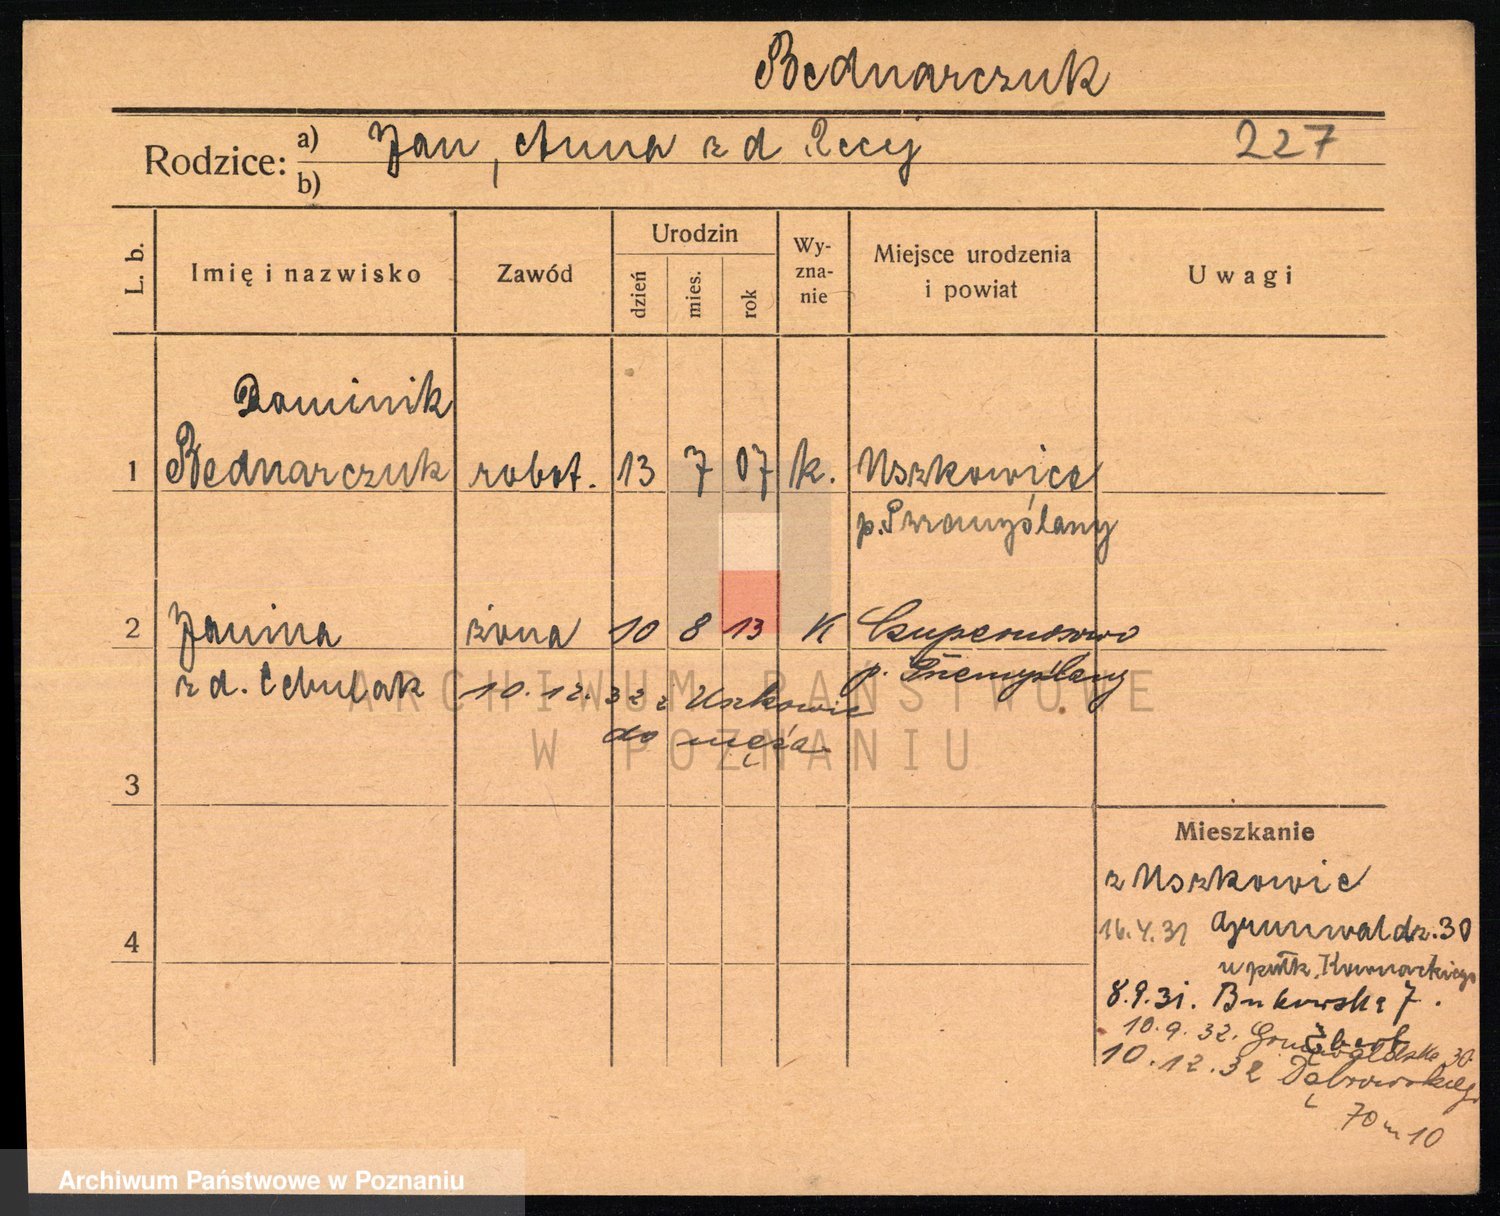 Bednarczuk
Rodzice: a) Jan, Anna z d Recej 227
b)
L. b.
Imię i nazwisko
Zawód
Urodzin
dzień
mies.
rok
Wy-
zna-
nie
Miejsce urodzenia
i powiat
Uwagi
Dominik
1 Bednarczuk robot. 13 7 07 k. Uszkowice
p. Przemyślany
2 Janina żona 10 8 13 K
z d. Cebulak
p. Przemyślany
10.12.32 z Uszkowic
do męża
ARCHIWUM PAŃSTWOWE
W POZNANIU
3
Mieszkanie
z Uszkowic
4
16.4.31 Grunwaldz. 30
u pułk.
8.9.31. Bukowska 7.
10.9.32. Grunwaldzka 30
10.12.32 Dąbrowskieg
70 m 10
Archiwum Państwowe w Poznaniu